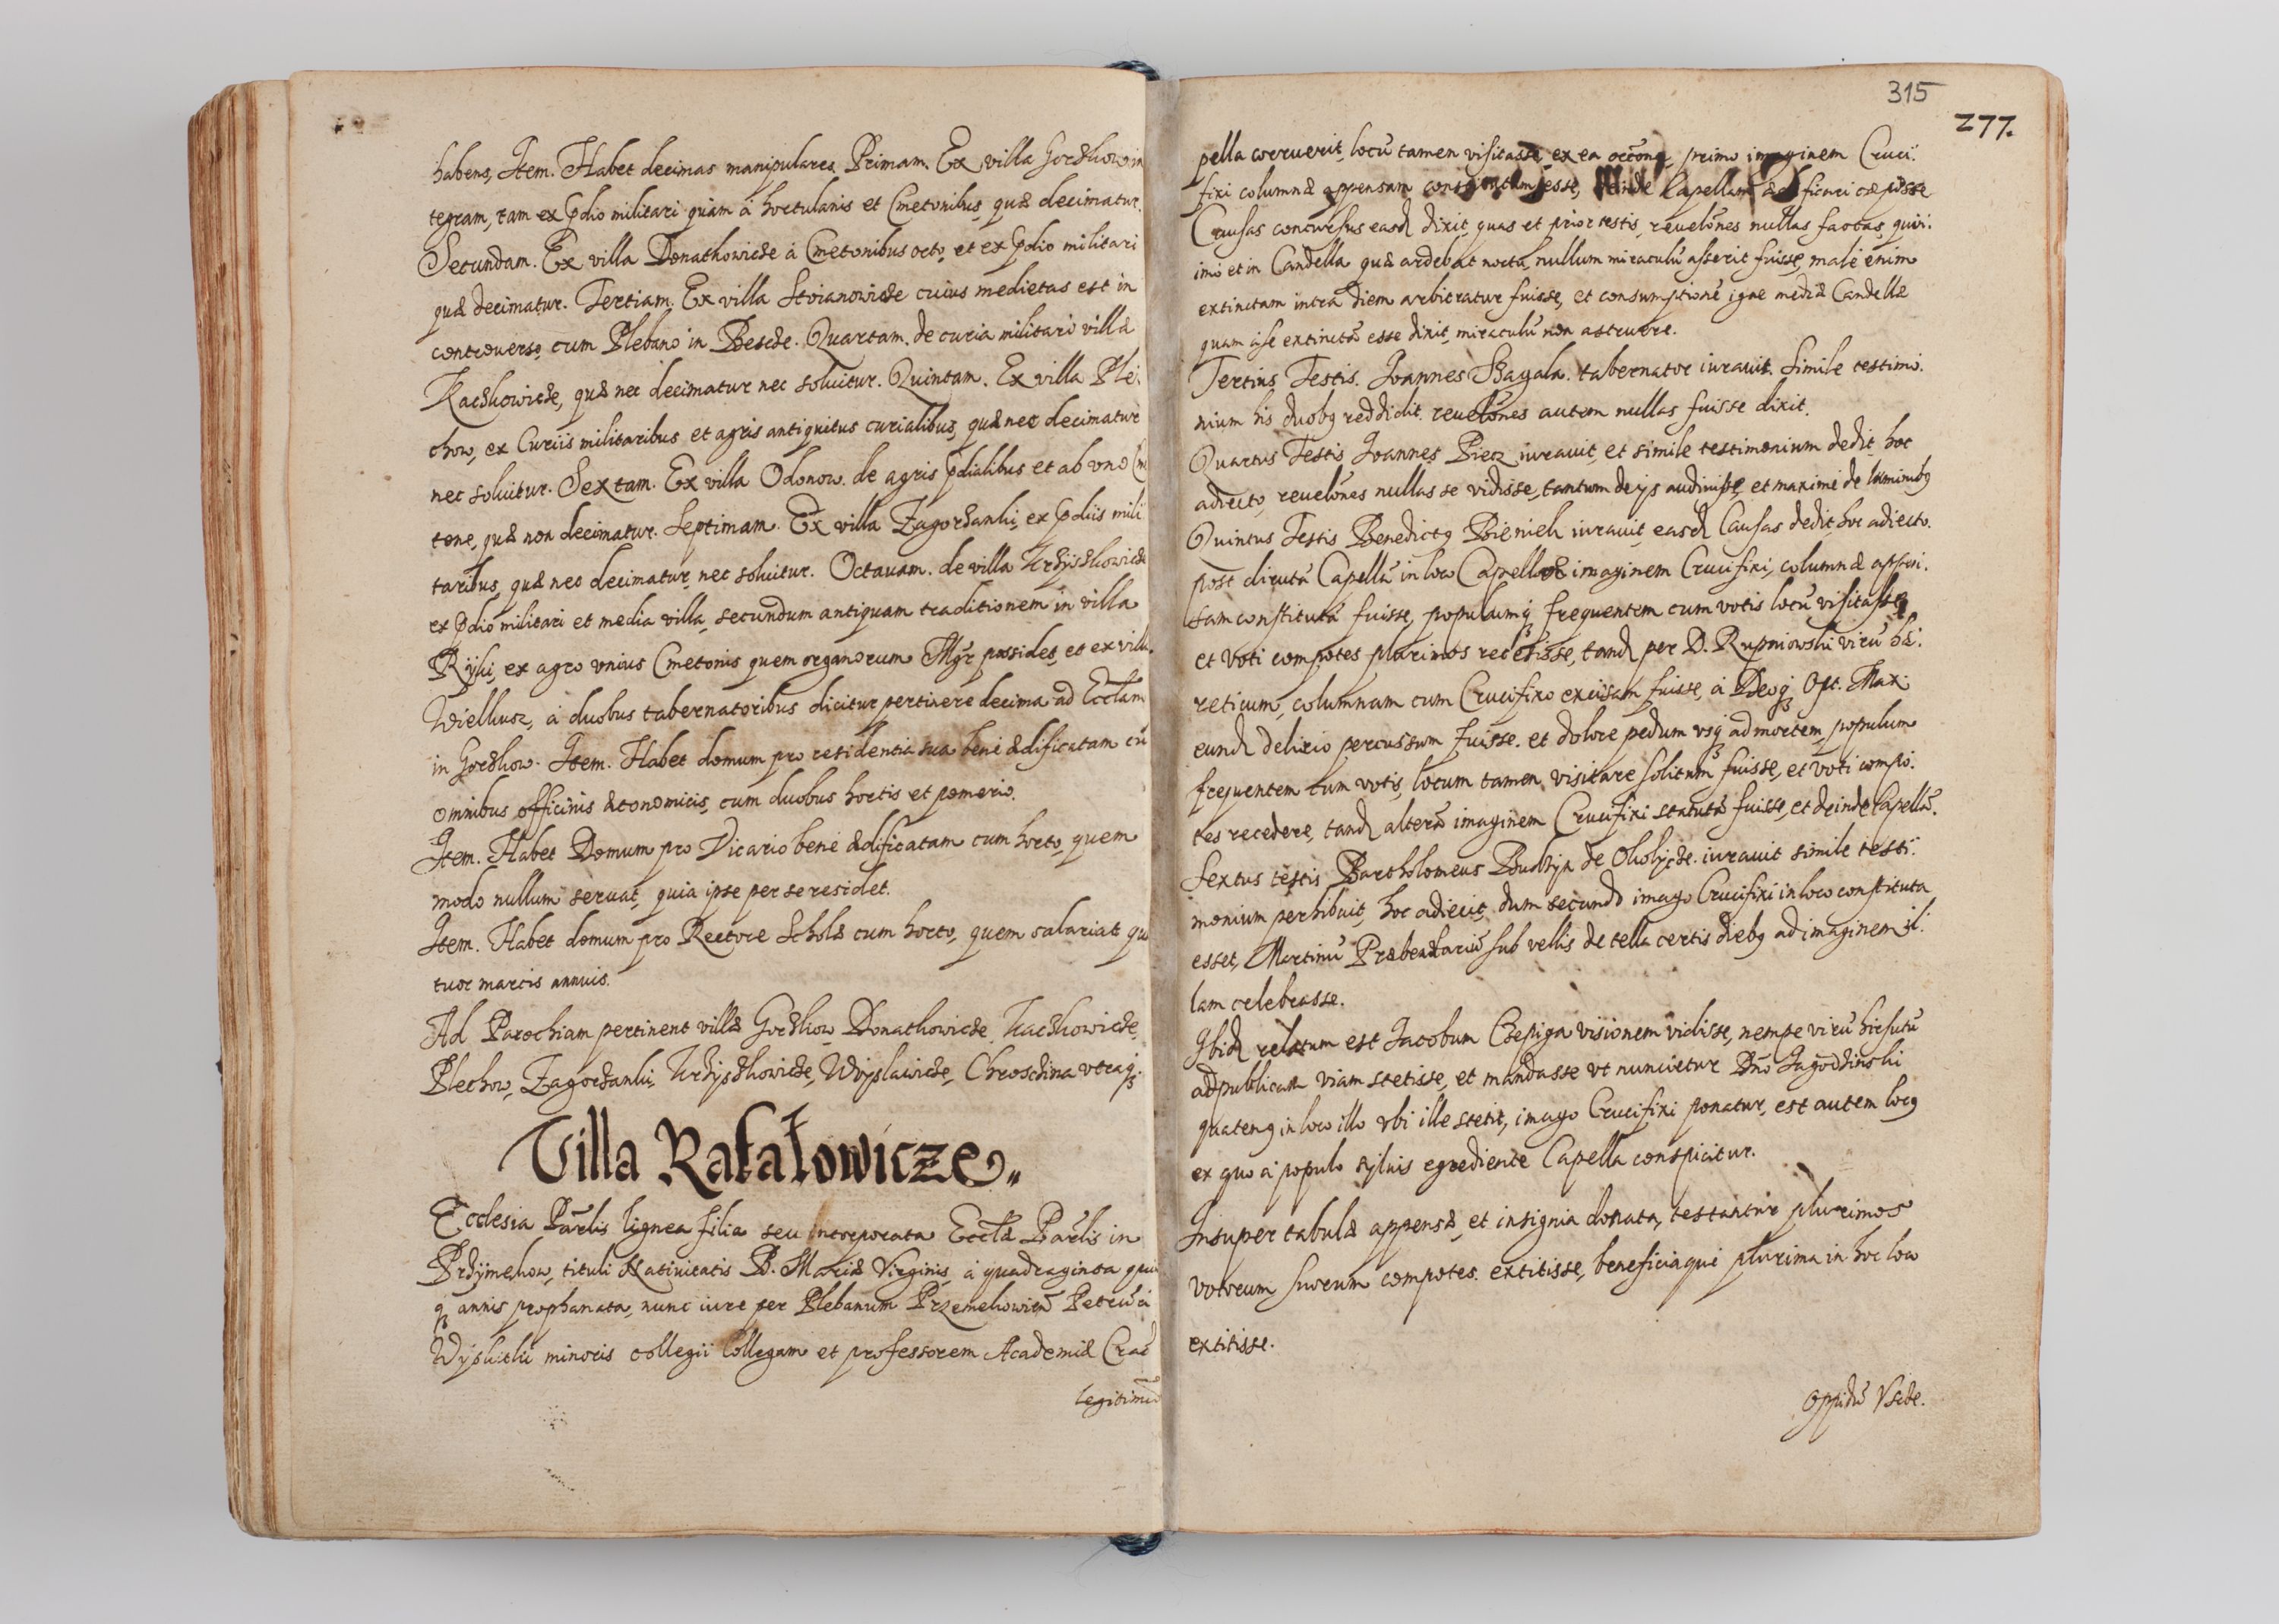 habens, Item. Habet decimas manipulares. Primam. Ex villa Gorzkow in
tegram, tam ex pdio militari quàm à hortulanis et Cmetonibus, quæ decimatur.
Secundam. Ex villa Donathowicze à Cmetonibus octo, et ex pdio militari
quæ decimatur. Tertiam. Ex villa Stoianowicze cuius medietas est in
controuerso, cum Plebano in Bescze. Quartam. de curia militari villæ
Kaczkowicze, quæ nec decimatur nec soluitur. Quintam. Ex villa Ple
chow, ex Curiis militaribus et agris antiquitus curialibus, quæ nec decimatur
nec soluitur. Sextam. Ex villa Odonow. de agris pdialibus et ab vno Cm
tone, quæ non decimatur. Septimam. Ex villa Zagorzanki, ex pdiis mili
taribus, quæ nec decimatur, nec soluitur. Octauam. de villa Krzÿszkowicze
ex pdio militari et media villa, secundum antiquam traditionem in villa
Rÿki, ex agro vnius Cmetonis quem organorum Mgr possidet, et ex villa
Wielkusz, à duobus tabernatoribus dicitur pertinere decima ad Ecclam
in Gorzkow. Item. Habet domum pro residentia sua bene ædificatam cū
omnibus officinis œconomicis, cum duobus hortis et pomerio.
Item. Habet Domum pro Vicario bene ædificatam cum horto, quem
modo nullum seruat, quia ipse per se residet.
Item. Habet domum pro Rectore Scholæ cum horto, quem salariat qua
tuor marcis annuis.
Ad Parochiam pertinent villæ Gorzkow, Donathowicze, Kaczkowicze,
Plechow, Zagorzanki, Krzÿszkowicze, Wÿslawicze, Chrosczina vtraq.
Villa Rafałowicze
Ecclesia Parlis lignea filia seu incorporata Ecclæ Parlis in
Przÿmekow, tituli Natiuitatis B. Mariæ Virginis, à quadraginta quin
q annis prophanata, nunc iure per Plebanum Przemekowien Petrū à
Wÿslithi minoris collegii Collegam et professorem Academiæ Crac
legitimè
315
277.
pella corruerit, locū tamen visitasse, ex ea occone, primo imaginem Cruci
fixi columnæ appensam esse, deinde Capellam ædificari cæpisse
Causas concursus easd dixit, quas et prior testis, reuelones nullas factas, qui
imo et in Candella quæ ardebat nocta, nullum miraculū asserit fuisse, male enim
extinctam intra diem arbitratur fuisse, et consumptionē igne mediæ Candellæ
quam à se extinctā esse dixit, miraculū non astruere.
Tertius Testis. Joannes Bagala. tabernator iurauit. Simile testimo
nium his duobq reddidit. reuelones autem nullas fuisse dixit.
Quartus Testis Joannes Piecz iurauit, et simile testimonium dedit, hoc
adiecto, reuelones nullas se vidisse, tantum de ijs audiuisse, et maximè de luminibq
Quintus Testis Benedictq Bieniek iurauit, easd Causas dedit, hoc adiecto.
post dirutā Capellā in loco Capellæ imaginem Crucifixi, columnæ appen
sam constitutā fuisse, populumq frequentem cum votis locū visitasse
et voti compotes plurimos recessisse, tand per D. Rupniowski virū hæ
reticum, columnam cum Crucifixo excisam fuisse, à Deoq Opt. Max:
eund delirio percussum fuisse. et dolore pedum vsq ad mortem, populum
frequentem cum votis, locum tamen visitare solitum fuisse, et voti compo
tes recedere, tand alterā imaginem Crucifixi statutā fuisse, et deinde Capellā.
Sextus testis Bartholomeus de Okolÿcze. iurauit simile testi
monium perhibuit, hoc adiecit, dum secundò imago Crucifixi in loco constituta
esset, Martinū Præbendariū sub vellis de tella certis diebq ad imaginem il
lam celebrasse.
Ibid relatum est Jacobum Czepiga visionem vidisse, nempe virū hirsutū
ad publicam viam stetisse, et mandasse vt nuncietur Dno Jagodzinski
quatenq in loco illo vbi ille stetit, imago Crucifixi ponatur, est autem locq
ex quo à populo sÿluis egrediente Capella conspicitur.
Insuper tabulæ appensæ, et insignia donata, testantur plurimos
votorum suorum compotes. extitisse, beneficiaque plurima in hoc loco
extitisse.
Oppidū Vscze.